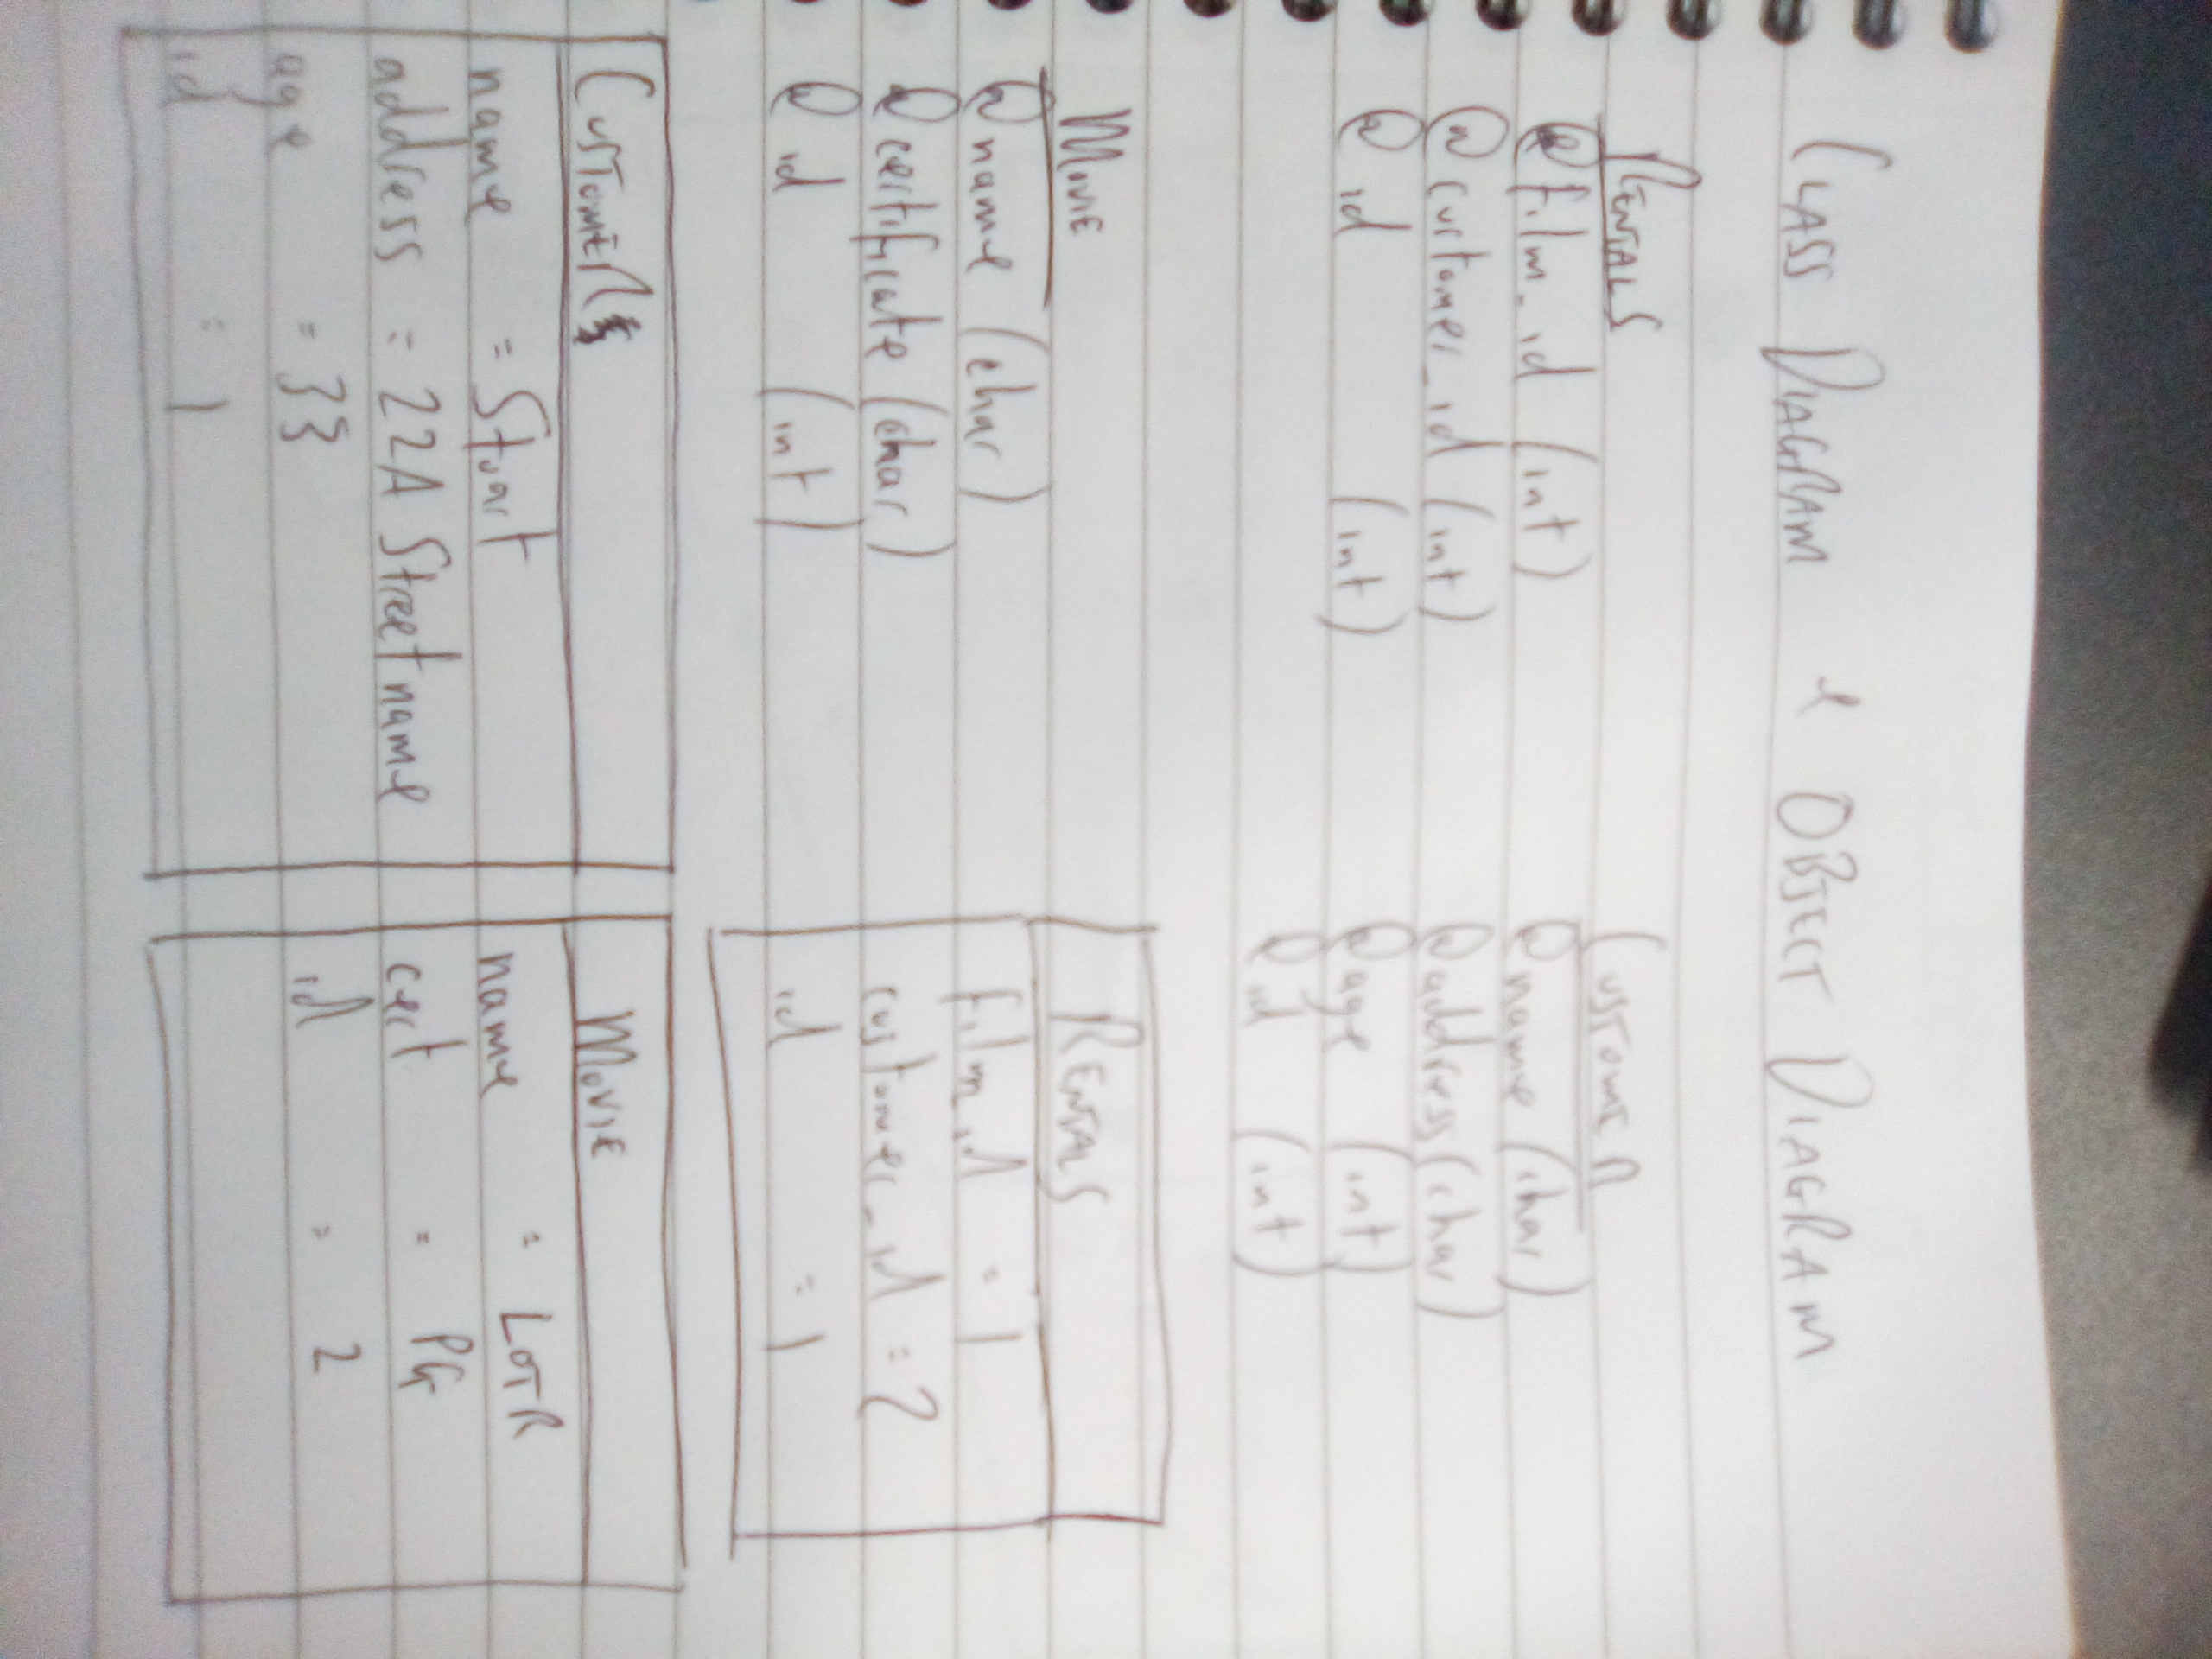 CLASS DIAGRAM & OBJECT DIAGRAM
RENTALS
@ film_id (int)
@ customer_id (int)
@ id (int)
CUSTOMER
@ name (char)
@ address (char)
@ age (int)
@ id (int)
MOVIE
@ name (char)
@ certificate (char)
@ id (int)
RENTALS
film_id = 1
customer_id = 2
id = 1
CUSTOMER
name = Stuart
address = 22A Streetname
age = 33
id = 1
MOVIE
name = LOTR
cert = PG
id = 2